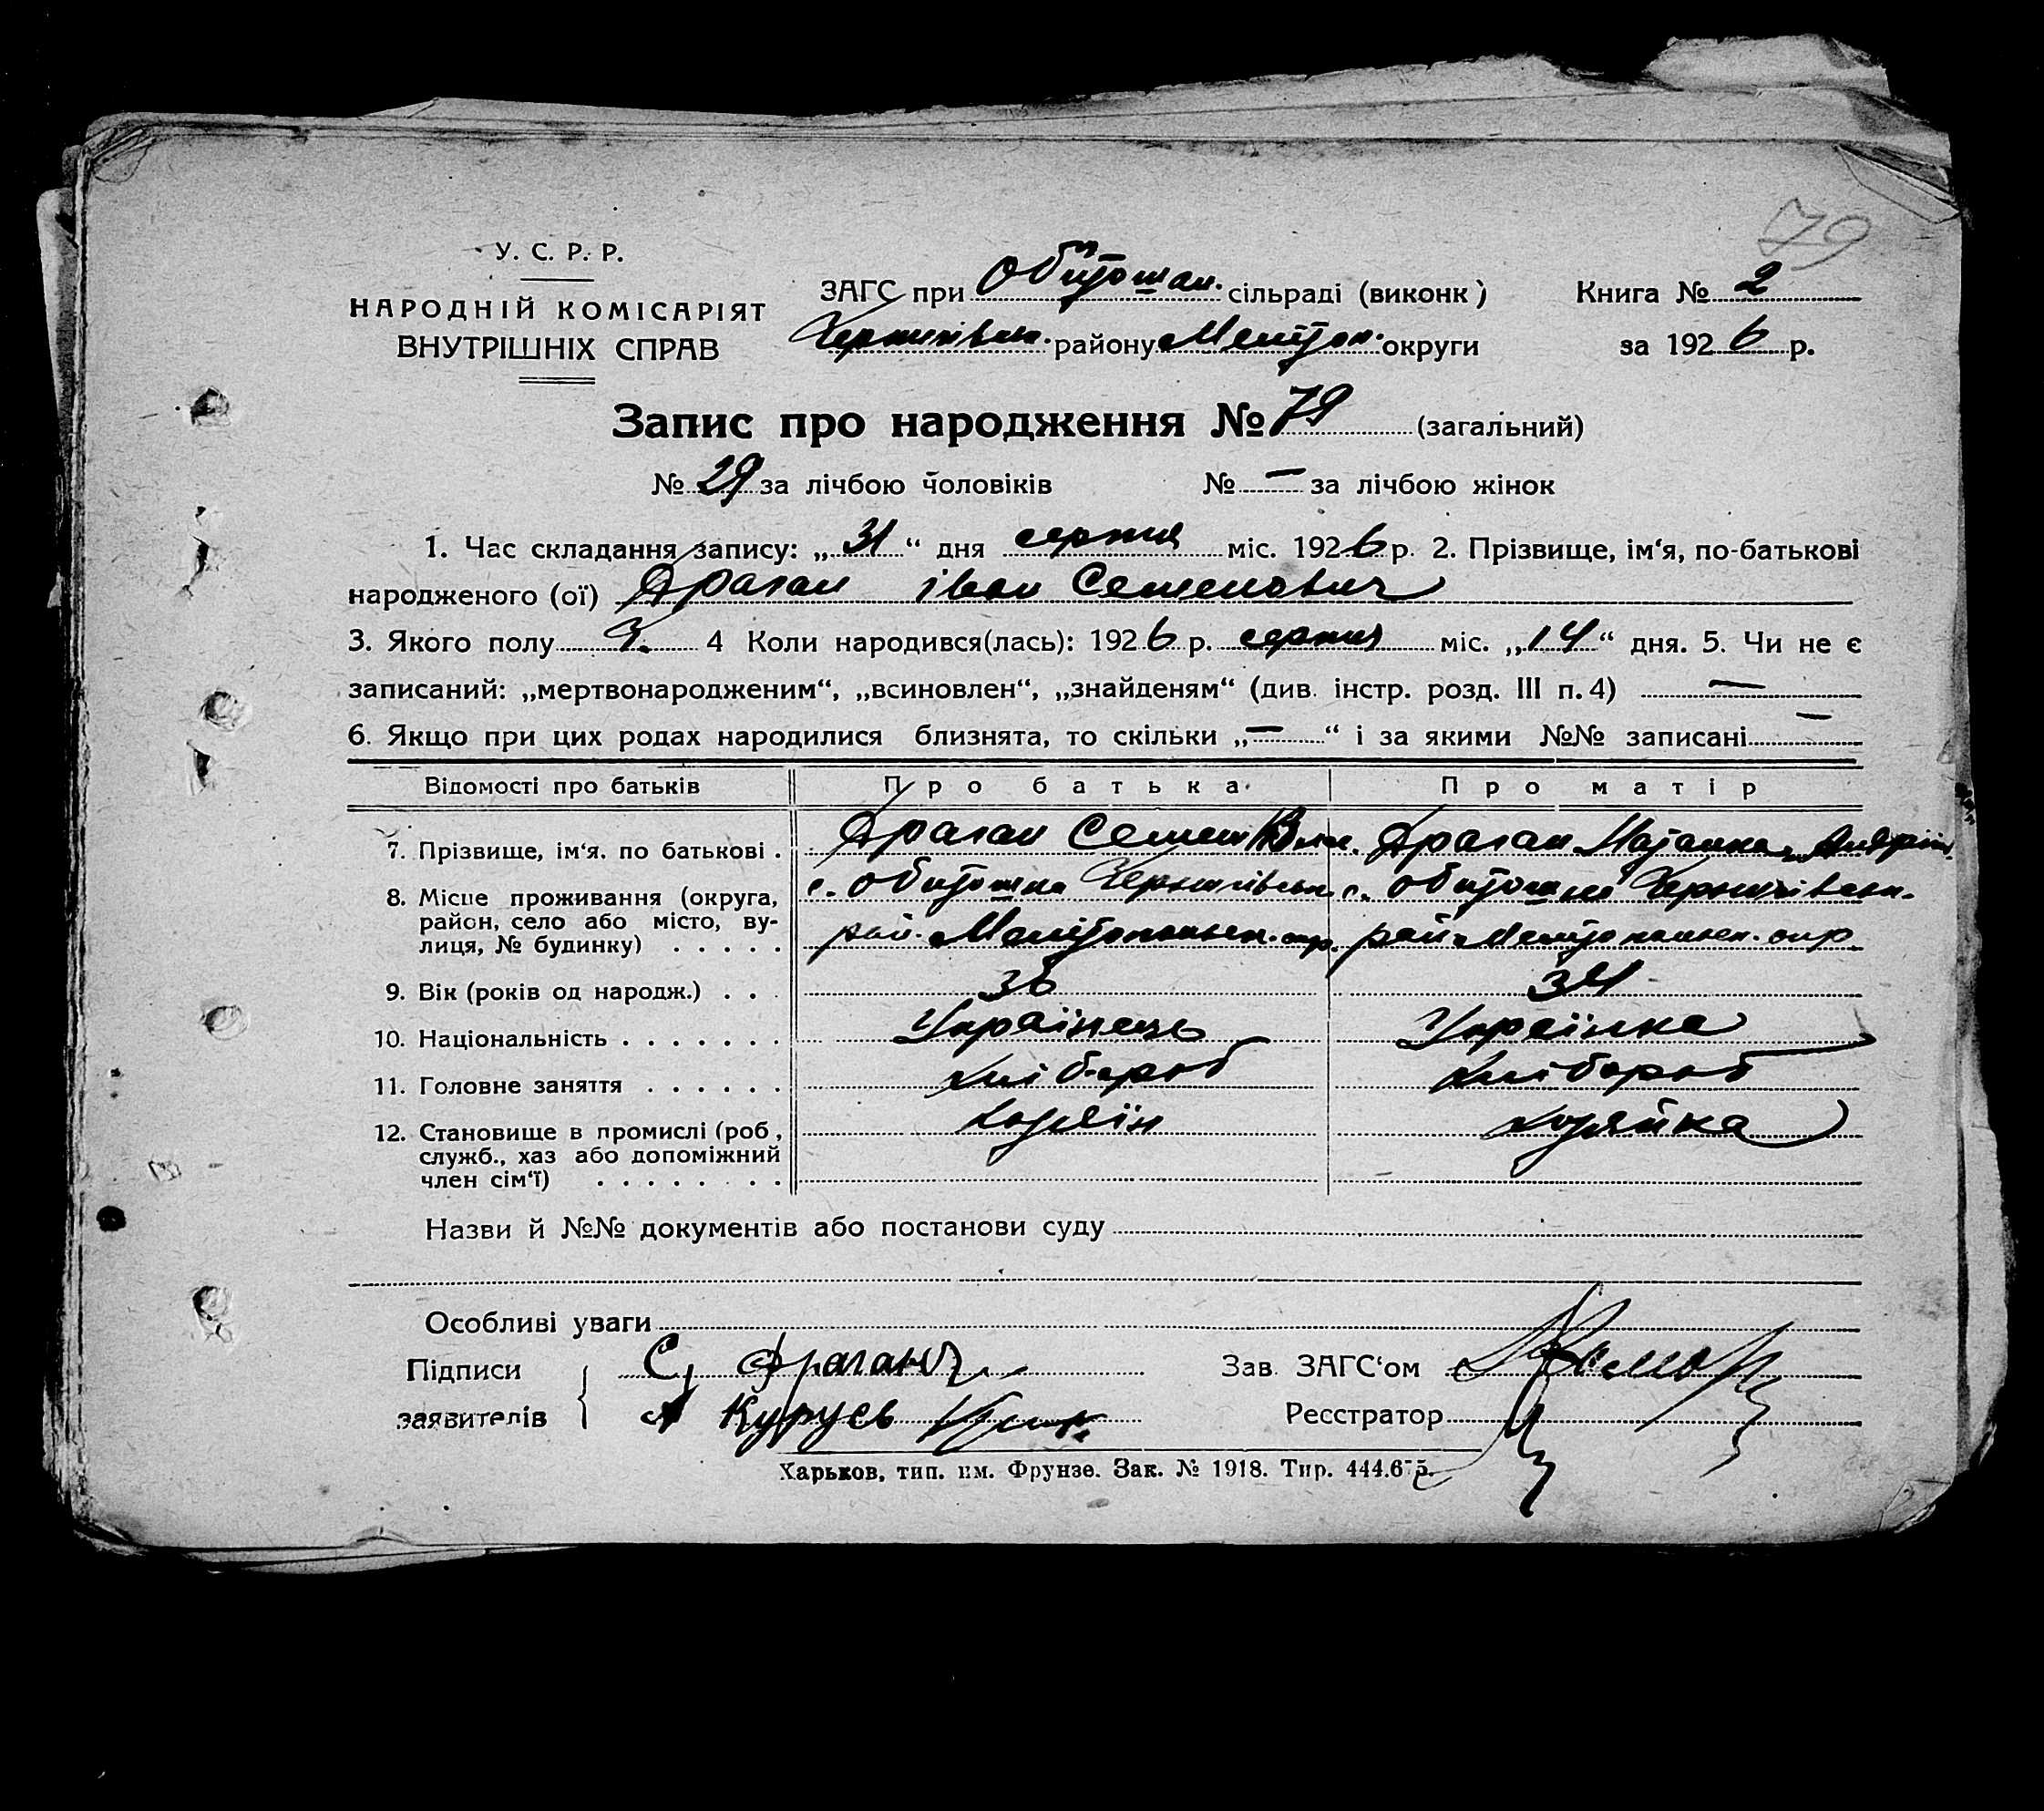 79
У. С. Р. Р.
НАРОДНІЙ КОМІСАРІЯТ
ВНУТРІШНІХ СПРАВ
ЗАГС при Обиточан. сільраді (виконк)
Книга № 2
Чернигівськ. району Мелітоп. округи
за 1926 р.
Запис про народження № 79 (загальний)
№ 29 за лічбою чоловіків № — за лічбою жінок
1. Час складання запису: „31“ дня серпня міс. 1926 р. 2. Прізвище, ім‘я, по-батькові
народженого (ої) Драган Іван Семенович
3. Якого полу Ч. 4 Коли народився(лась): 1926 р. серпня міс. „14“ дня. 5. Чи не є
записаний: „мертвонародженим“, „всиновлен“, „знайденям“ (див. інстр. розд. III п. 4) —
6. Якщо при цих родах народилися близнята, то скільки „—“ і за якими №№ записані —
Відомості про батьків Про батька Про матір
7. Прізвище, ім‘я, по батькові . Драган Семен Драган
8. Місце проживання (округа,
район, село або місто, ву-
лиця, № будинку) . . . . .
с. Чернигівськ с. Чернигівськ.
рай. Мелітопольськ. окр. рай Мелітопольськ. окр
9. Вік (років од народж.) . . . 36 34
10. Національність . . . . . . . Українець Українка
11. Головне заняття . . . . . . Хлібороб Хлібороб
12. Становище в промислі (роб.,
служб., хаз або допоміжний
член сім‘ї) . . . . . . .
Хозяїн Хозяйка
Назви й №№ документів або постанови суду
Особливі уваги
Підписи
заявителів
С Драган
А Курусь
Зав. ЗАГС‘ом
Реєстратор
Харьков, тип. им. Фрунзе. Зак. № 1918. Тир. 444.675.